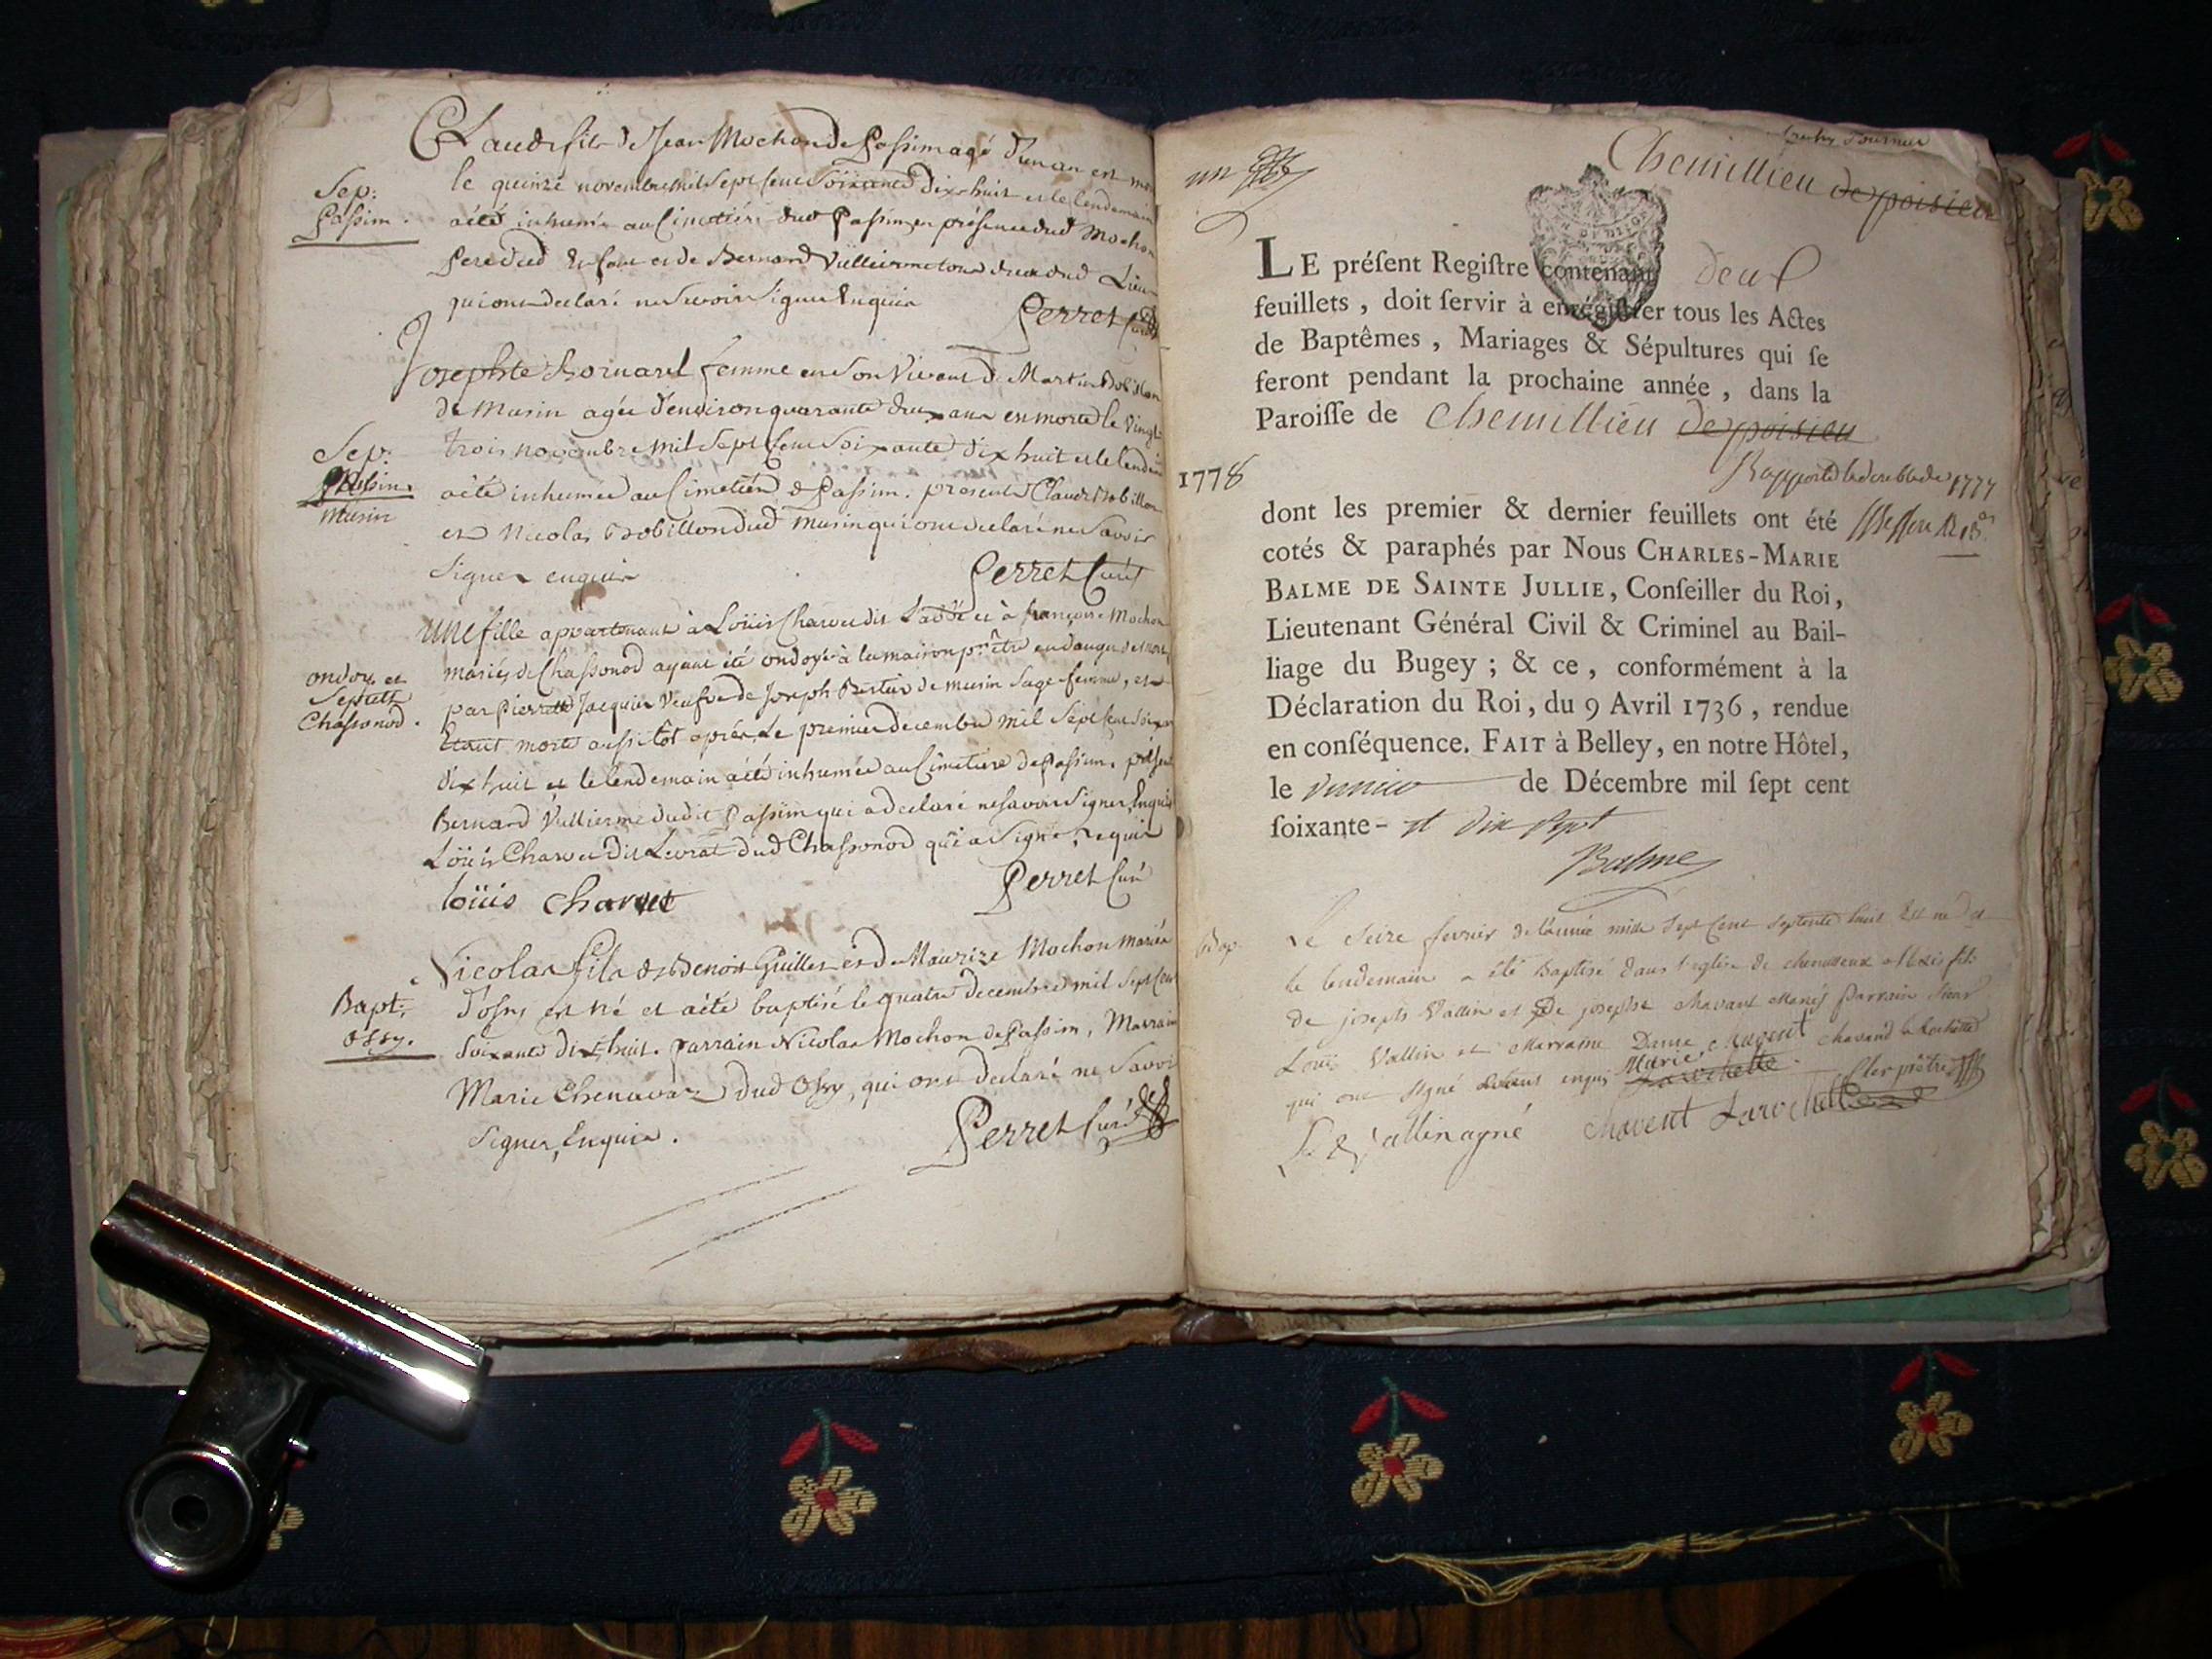 Claude fils de Jean Mochon de Passim agé d'un an est
le quinze novembre mil sept cent soixante dix huit et le lendemain
a été inhumé au Cimetière dud Passim en présence dud Mochon
pere dud Enfant et de Bernard Vulliermet tous deux dud Lieu
qui ont declaré ne Savoir Signer Enquis
Perret Curé
Sep:
Passim.
Josephte Bornard femme en Son Vivant de Martin Bobillon
de Musin agée d'environ quarante deux ans est morte le Vingt
trois novembre mil Sept Cent Soixante dix huit et le lendem
a été inhumée au Cimetière de Passim. présents Claude Bobillon
et Nicolas Bobillon dud Musin qui ont declaré ne Savoir
Signer enquis
Perret Curé
Sep:
Passim.
Musin
une fille appartenant à Loüis Charvet dit et à françoise Mochon
mariés de Chassonod ayant été ondoyé à la maison en danger de mort
par Pierrette Jacquier Veufve de Joseph Bertier de musin Sage femme, et
Etant morte aussitôt après Le premier decembre mil Sept Cent Soixan
dix huit et le lendemain a été inhumée au Cimetiere de Passim. présent
Bernard Vullierme dudit Passim qui a declaré ne Savoir Signer Enquis
Loüis Charvet dit Levrat dud Chassonod qui a Signé, requis
loüis charvet
Perret Curé
ondoy. et
Sepult.
Chassonod.
Nicolas fils de Benoit Guillet et de Maurize Mochon mariés
d'ossy est né et a été baptisé le quatre decembre mil Sept Cent
Soixante dix huit. parrain Nicolas Mochon de Passim, Marrain
Marie Chenavaz dud Ossy, qui ont declaré ne Savoir
Signer, Enquis.
Perret Curé
Bapt:
ossy.
un
Chemillieu de poisieu
LE préſent Regiſtre contenant deux
feuillets, doit ſervir à enrégiſtrer tous les Actes
de Baptêmes, Mariages & Sépultures qui ſe
feront pendant la prochaine année, dans la
Paroiſſe de Chemillieu de poisieu
1778
dont les premier & dernier feuillets ont été
cotés & paraphés par Nous CHARLES-MARIE
BALME DE SAINTE JULLIE, Conſeiller du Roi,
Lieutenant Général Civil & Criminel au Bail-
liage du Bugey; & ce, conformément à la
Déclaration du Roi, du 9 Avril 1736, rendue
en conſéquence. FAIT à Belley, en notre Hôtel,
le de Décembre mil ſept cent
ſoixante- et dix sept
Balme
Le seize fevrier de l'année mille Sept Cent Septente huit Est né et
le lendemain a été Baptisé dans l'eglise de fils
de joseph Vallin et De josephe Chavant Mariés parrain Sieur
Loüis Vallin et Marraine Dame
qui ont signé enquis Marie
Chavent Larochette